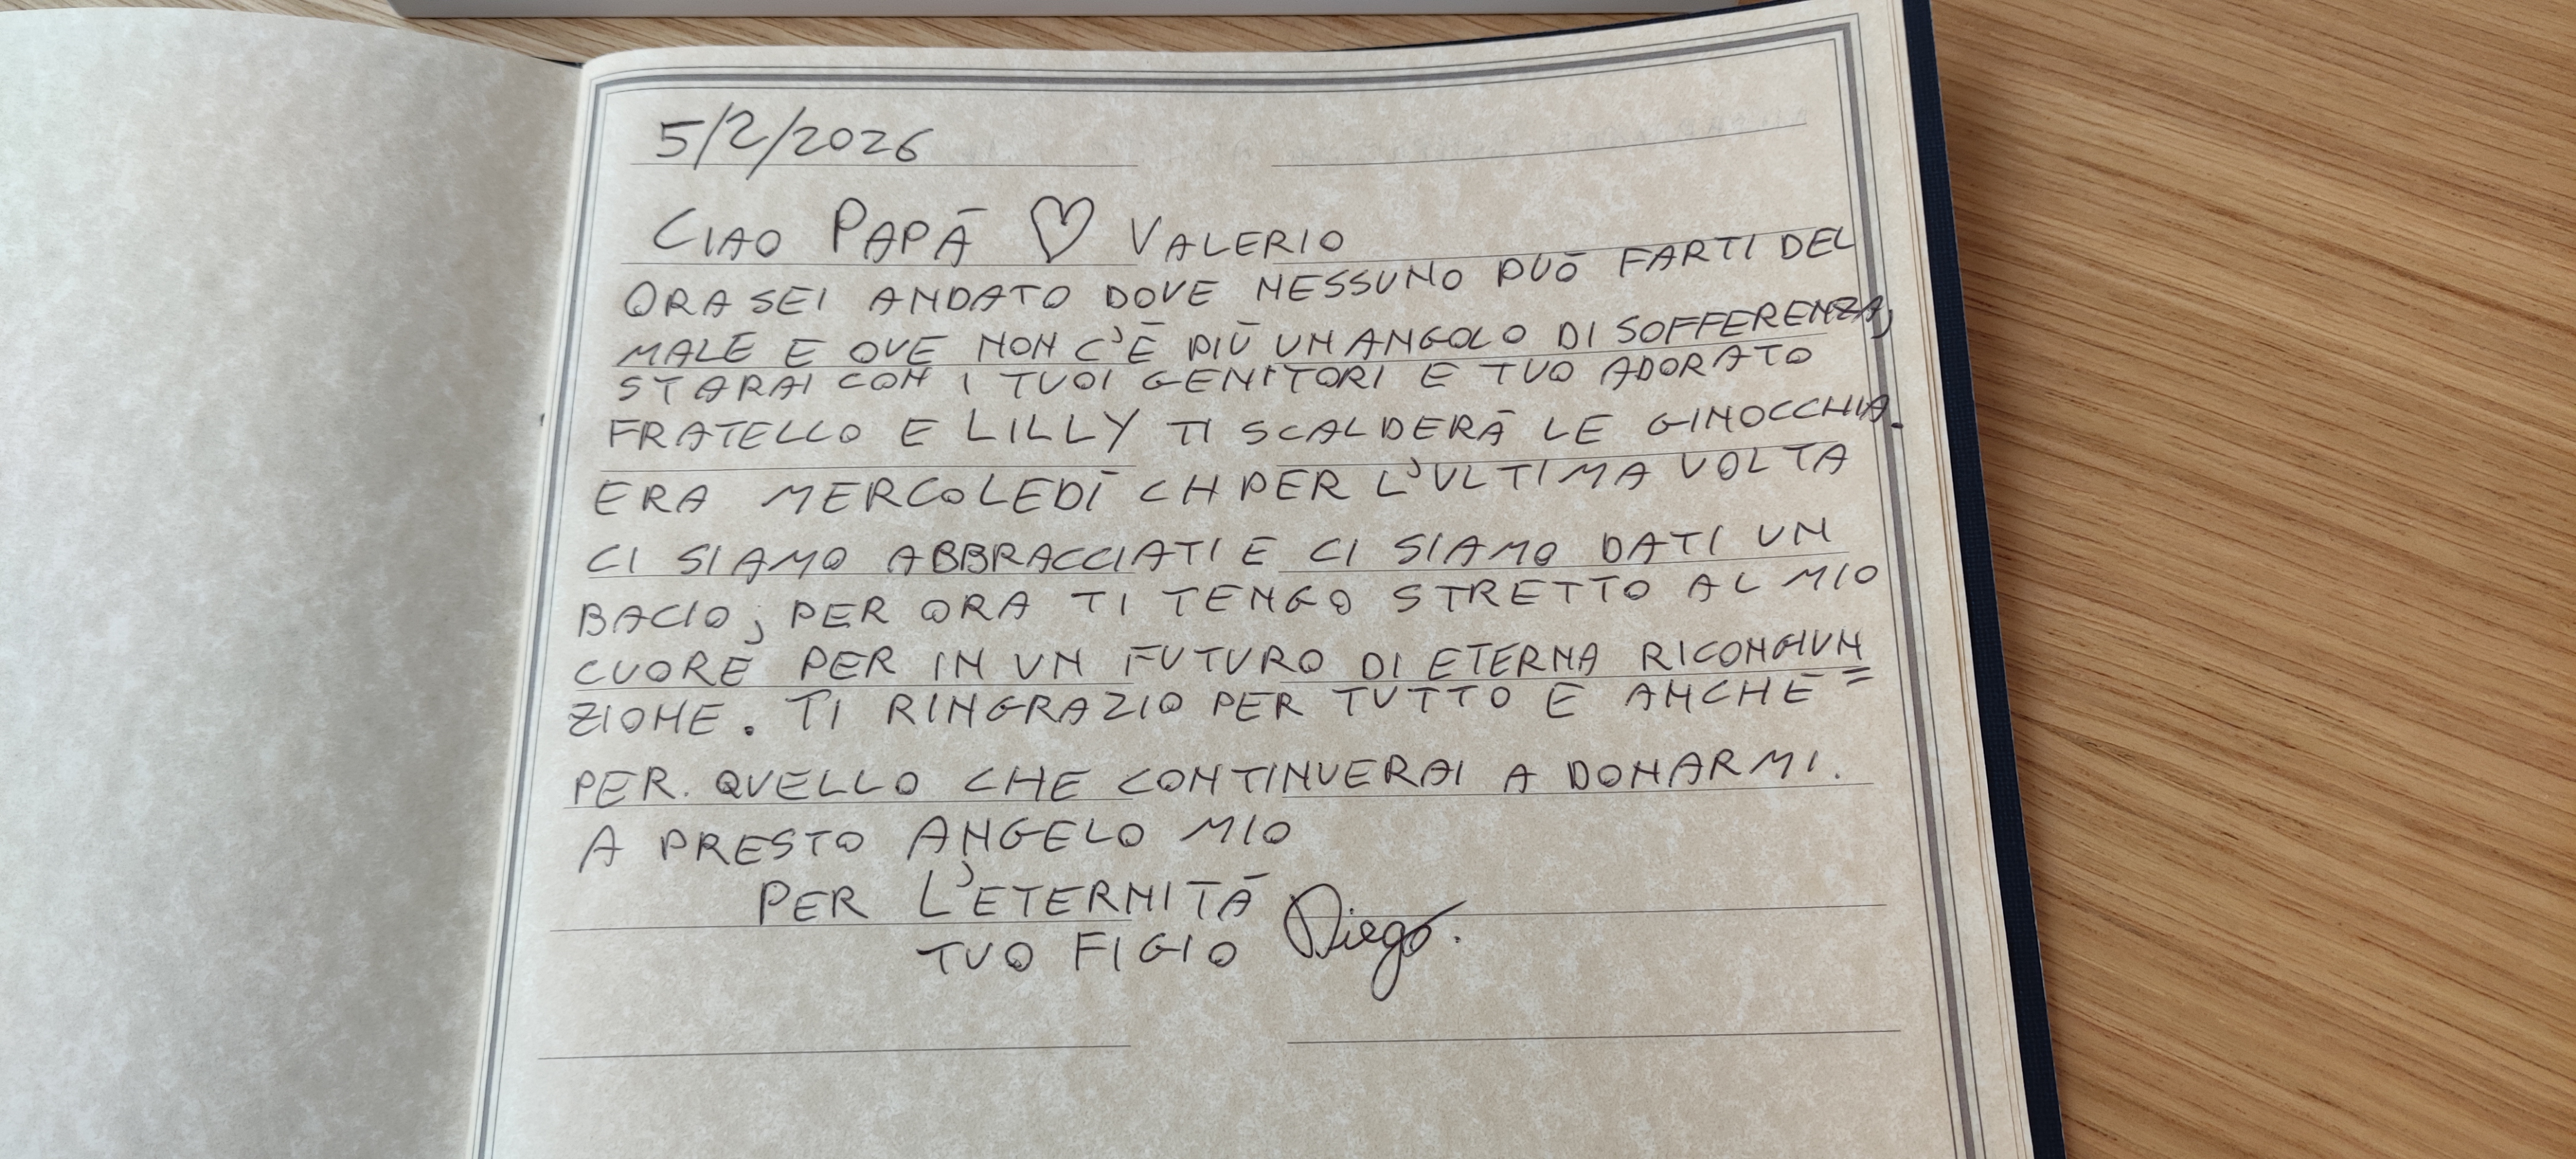 5/2/2026
CIAO PAPÀ ♡ VALERIO
ORA SEI ANDATO DOVE NESSUNO PUÒ FARTI DEL
MALE E OVE NON C'È PIÙ UN ANGOLO DI SOFFERENZA,
STARAI CON I TUOI GENITORI E TUO ADORATO
FRATELLO E LILLY TI SCALDERÀ LE GINOCCHIA.
ERA MERCOLEDÌ CH PER L'ULTIMA VOLTA
CI SIAMO ABBRACCIATI E CI SIAMO DATI UN
BACIO, PER ORA TI TENGO STRETTO AL MIO
CUORE PER IN UN FUTURO DI ETERNA RICONGIUN=
ZIONE. TI RINGRAZIO PER TUTTO E ANCHE
PER. QUELLO CHE CONTINUERAI A DONARMI.
A PRESTO ANGELO MIO
PER L'ETERNITÀ
TUO FIGIO Diego.